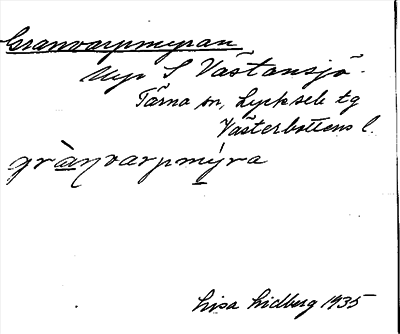 Granvarpmyran
Myr S Västansjö.
Tärna sn, Lycksele tg
Västerbottens l.
gràn̲varpmýra
Lisa Lidberg 1935